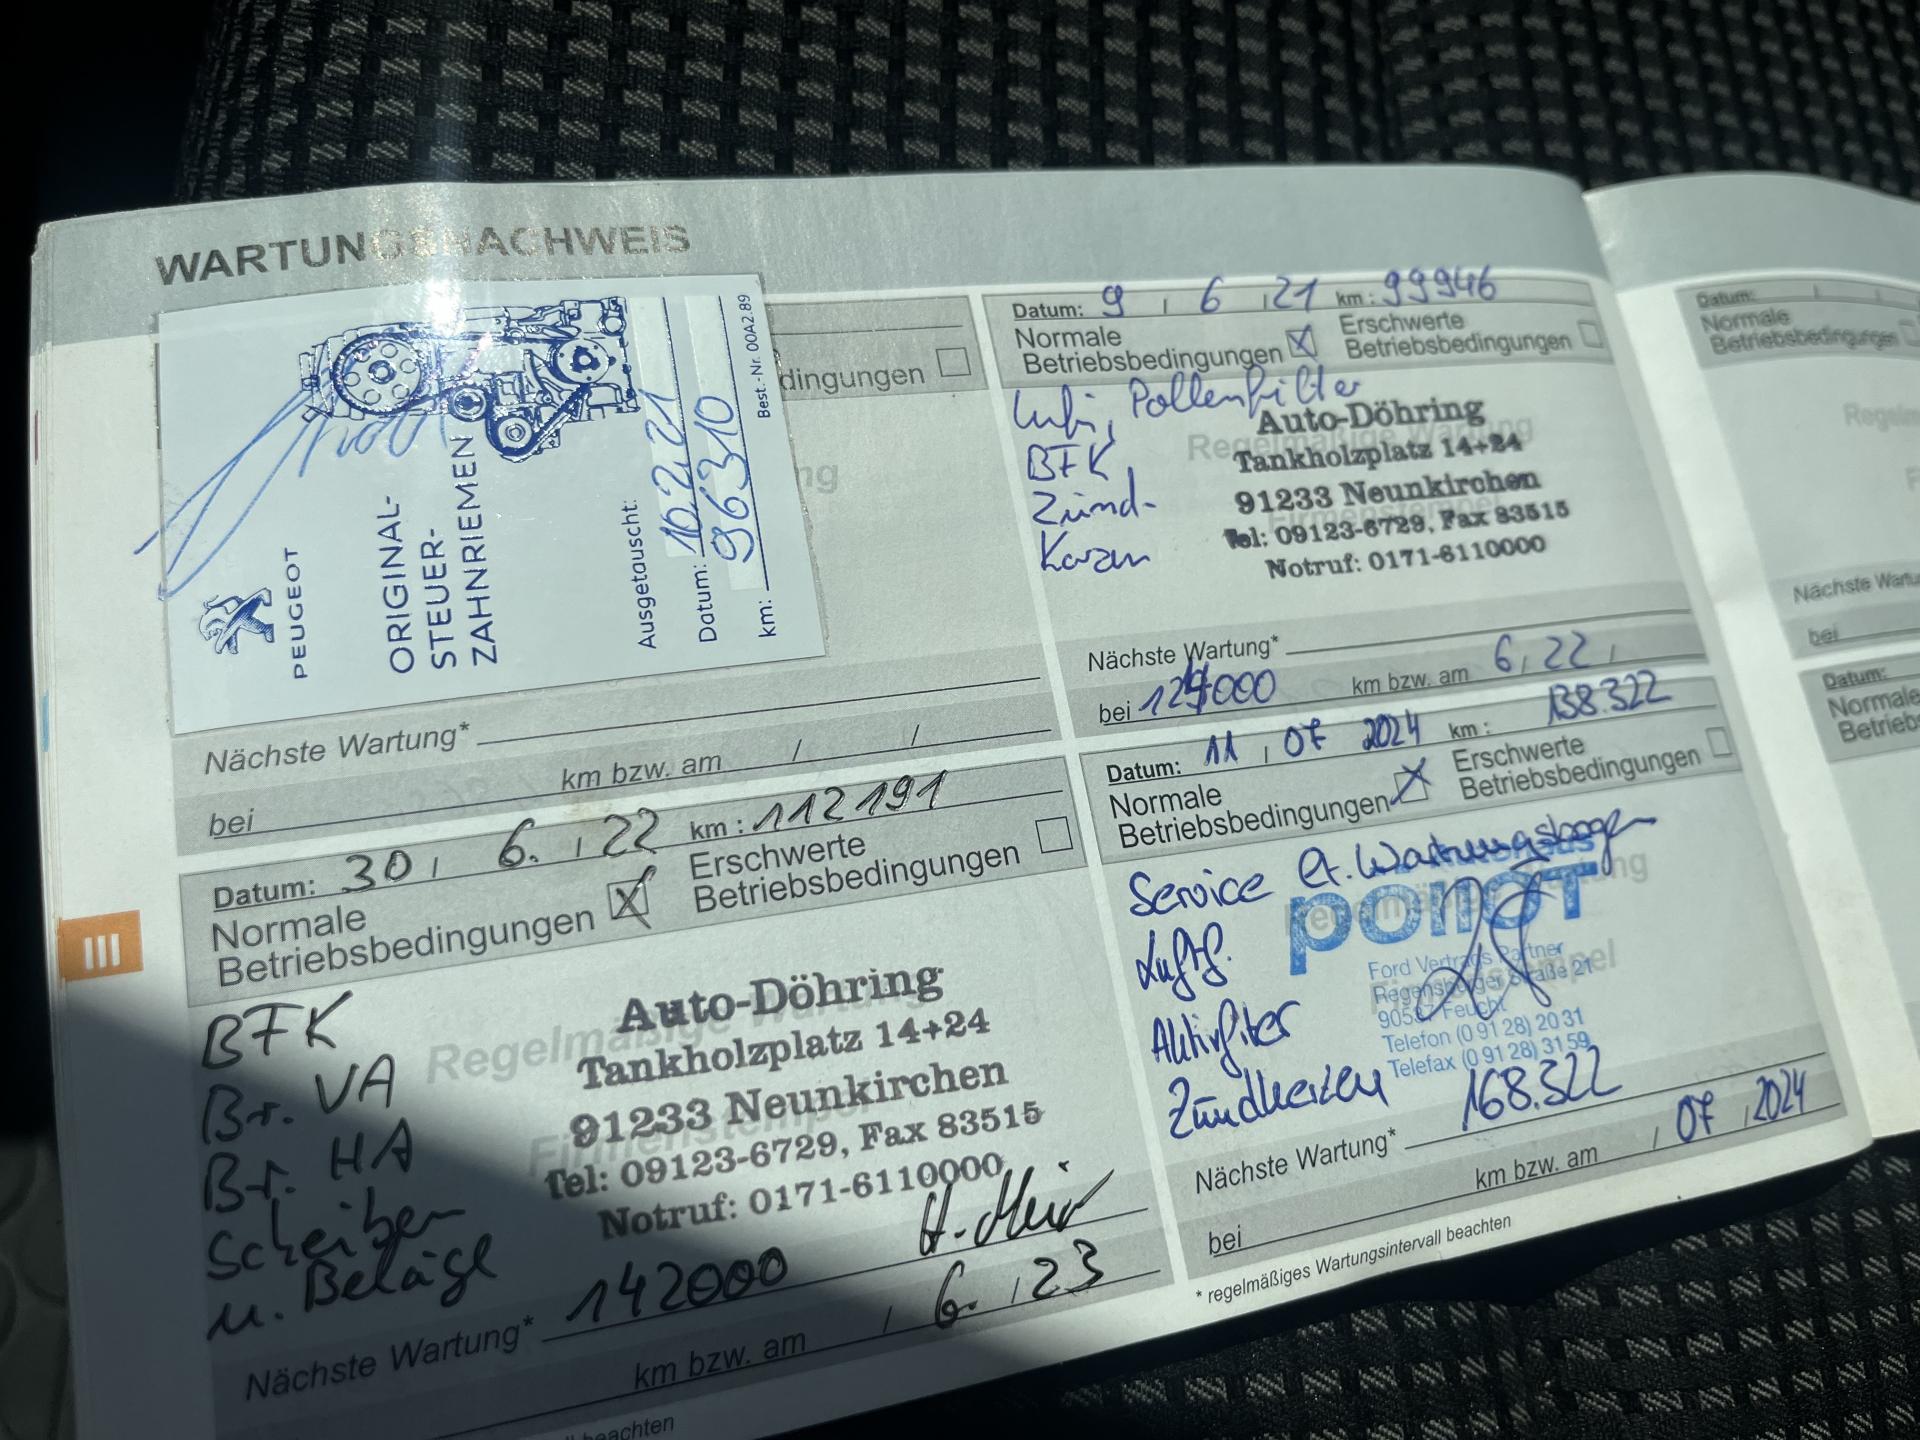 WARTUNGSNACHWEIS
PEUGEOT
ORIGINAL-
STEUER-
ZAHNRIEMEN
Ausgetauscht:
Datum: 10.2.21
km: 96310
Best.-Nr. 00A2.89
dingungen
Nächste Wartung*
bei km bzw. am / /
Datum: 9 / 6 / 21 km: 99946
Normale
Betriebsbedingungen X
Erschwerte
Betriebsbedingungen
Lufi, Pollenfilter
BFK
Zünd-
Kerzen
Regelmäßige Wartung
Auto-Döhring
Tankholzplatz 14+24
91233 Neunkirchen
Tel: 09123-6729, Fax 83515
Notruf: 0171-6110000
Nächste Wartung*
bei 124000 km bzw. am 6 / 22 /
Datum: 30 / 6. / 22 km: 112191
Normale
Betriebsbedingungen X
Erschwerte
Betriebsbedingungen
BFK
Br. VA
Br. HA
Scheiben
u. Beläge
Regelmäßige Wartung
Firmenstempel
Auto-Döhring
Tankholzplatz 14+24
91233 Neunkirchen
Tel: 09123-6729, Fax 83515
Notruf: 0171-6110000
Nächste Wartung* 142000
km bzw. am / 6. / 23
beachten
Datum: 11 / 07 2024 km: 138.322
Normale
Betriebsbedingungen X
Erschwerte
Betriebsbedingungen
Service lt. Wartungsbogen
Luftf.
Aktivfilter
Zündkerzen
Ford Vertrags Partner
Regensburger Straße 21
Feucht
Telefon (0 91 28) 20 31
Telefax (0 91 28) 31 59
Nächste Wartung* 168.322
bei km bzw. am / 07 / 2024
* regelmäßiges Wartungsintervall beachten
III
Datum:
Normale
Betriebsbedingungen
Nächste Wartu
bei
Datum:
Normale
Betriebsb